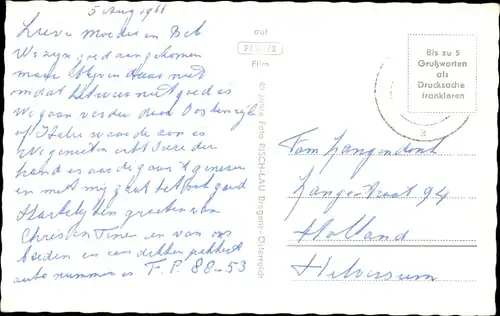 5 Aug 1966
Lieve Moeder en Bob
We zijn goed aangekomen
maar blijven daar niet
omdat het weer niet goed is
We gaan verder door Oostenrijk
of Italie waar de zon is
We genieten erbij zeer de
hand is aardig aan't genezen
en met mij gaat het ook goed
Hartelijk de groeten van
Chris en Tiner en van ons
beiden en een dikken pakkert
auto nummer is F.P. 88-53
auf
Film
© Echte Foto RISCH-LAU Bregenz-Österreich
Bis zu 5
Grußworten
als
Drucksache
frankieren
Fam Langendonk
Lange straat 94
Holland
Hilversum